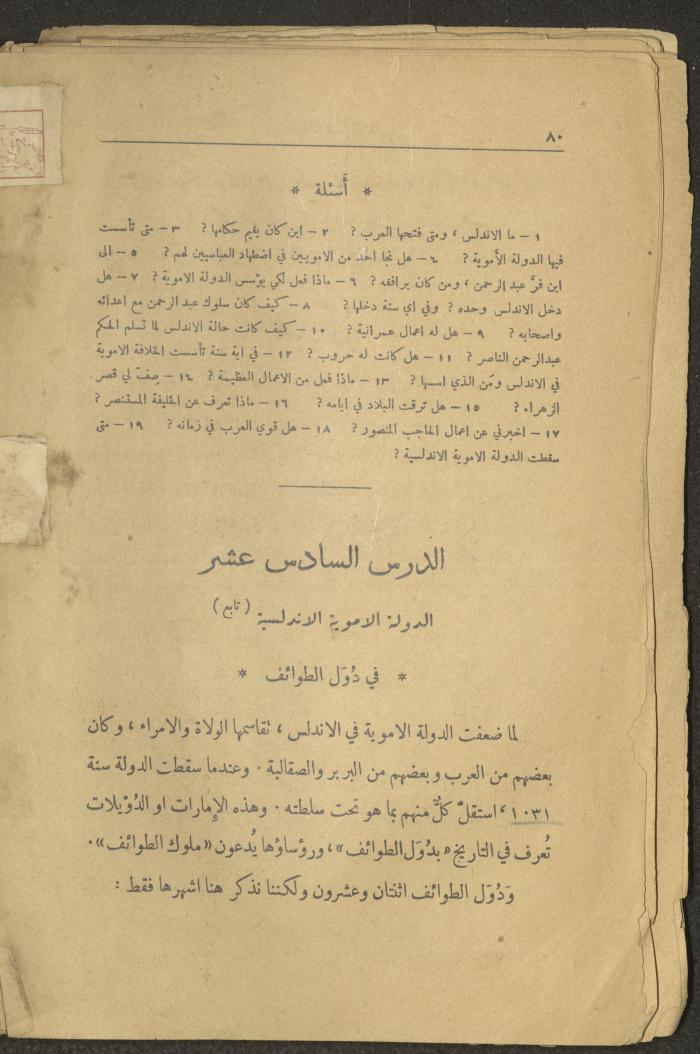 ٨٠
* أَسئلة *
١ – ما الاندلس ، ومتى فتحها العرب ? ٢ – اين كان يقيم حكامها ? ٣ – متى تأسست
فيها الدولة الأموية ? ٤ – هل نجا احد من الامويين في اضطهاد العباسيين لهم ? ٥ – الى
اين فرَّ عبد الرحمن ، ومن كان يرافقه ? ٦ – ماذا فعل لكي يؤسس الدولة الاموية ? ٧ – هل
دخل الاندلس وحده ? وفي اي سنة دخلها ? ٨ – كيف كان سلوك عبد الرحمن مع اعدائه
واصحابه ? ٩ – هل له اعمال عمرانية ? ١٠ – كيف كانت حالة الاندلس لما تسلم الحكم
عبدالرحمن الناصر ? ١١ – هل كانت له حروب ? ١٢ – في اية سنة تأسست الخلافة الاموية
في الاندلس ومَن الذي اسسها ? ١٣ – ماذا فعل من الاعمال العظيمة ? ١٤ – صِفْ لي قصر
الزهراء ? ١٥ – هل ترقت البلاد في ايامه ? ١٦ – ماذا تعرف عن الخليفة المستنصر ?
١٧ – اخبرني عن اعمال الحاجب المنصور ? ١٨ – هل قوي العرب في زمانه ? ١٩ – متى
سقطت الدولة الاموية الاندلسية ?
الدرس السادس عشر
الدولة الاموية الاندلسية ( تابع )
* في دُوَل الطوائف *
لما ضعفت الدولة الاموية في الاندلس ، تقاسمها الولاة والامراء ، وكان
بعضهم من العرب وبعضهم من البربر والصقالبة . وعندما سقطت الدولة سنة
١٠٣١ ، استقلَّ كلٌّ منهم بما هو تحت سلطته . وهذه الإمارات او الدُوَيلات
تُعرف في التاريخ «بدُوَل الطوائف» ، ورؤساؤها يُدعون «ملوك الطوائف» .
وَدُوَل الطوائف اثنتان وعشرون ولكننا نذكر هنا اشهرها فقط :